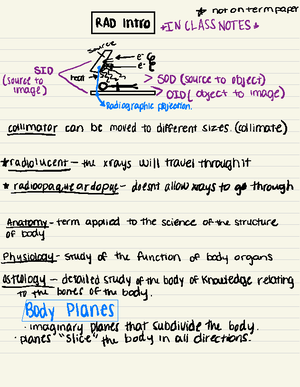 * not on term paper
RAD Intro
*IN CLASS NOTES*
source
SID
(source to
image)
e-
e-
heat
SOD (source to object)
OID (object to image)
Radiographic projection.
collimator can be moved to different sizes. (collimate)
*radiolucent - the xrays will travel through it
* radiopaque or dopue - doesnt allow xrays to go through
Anatomy - term applied to the science of the structure
of body
Physiology - study of the function of body organs
osteology - detailed study of the body of knowledge relating
to the bones of the body.
Body Planes
· imaginary planes that subdivide the body.
· planes "slice" the body in all directions.